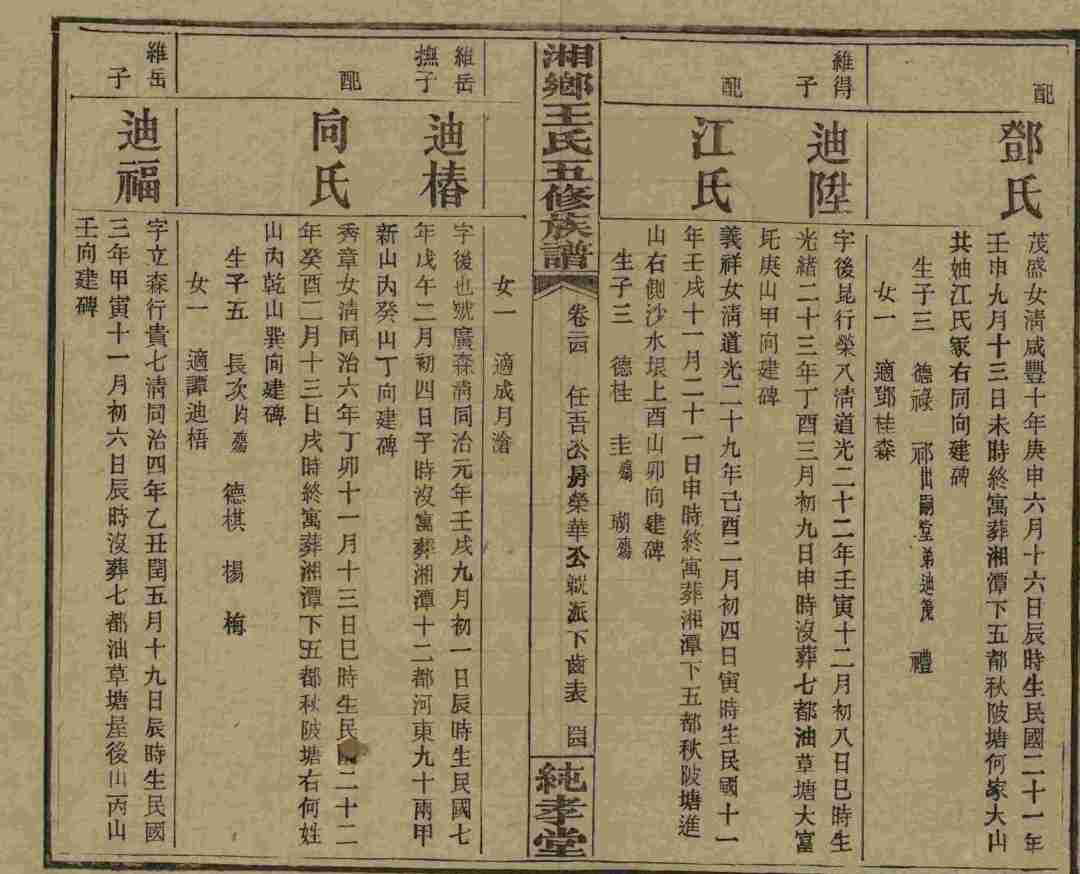 配
鄧氏
茂盛女清咸豐十年庚申六月十六日辰時生民國二十一年
壬申九月十三日未時終寓葬湘潭下五都秋陂塘何家大山
共妯江氏冢右同向建碑
生子三 德祿 祁出嗣堂弟迪茂 禮
女一 適鄧桂森
維得
子
迪陞
字後昆行榮八清道光二十二年壬寅十二月初八日巳時生
光緒二十三年丁酉三月初九日申時沒葬七都油草塘大富
圫庚山甲向建碑
配
江氏
義祥女清道光二十九年己酉二月初四日寅時生民國十一
年壬戌十一月二十一日申時終寓葬湘潭下五都秋陂塘進
山右側沙水垠上酉山卯向建碑
生子三 德桂 圭殤 瑚殤
女一 適成月滄
湘鄉王氏五修族譜
卷二四 任吾公房榮華公 派下齒表
純孝堂
維岳
撫子
迪椿
字後也號廣森清同治元年壬戌九月初一日辰時生民國七
年戊午二月初四日子時沒寓葬湘潭十二都河東九十兩甲
新山內癸山丁向建碑
配
向氏
秀章女清同治六年丁卯十一月十三日巳時生民國二十二
年癸酉二月十三日戌時終寓葬湘潭下五都秋陂塘右何姓
山內乾山巽向建碑
生子五 長次均殤 德棋 楊 梅
女一 適譚迪梧
維岳
子
迪福
字立森行貴七清同治四年乙丑閏五月十九日辰時生民國
三年甲寅十一月初六日辰時沒葬七都油草塘屋後山丙山
壬向建碑